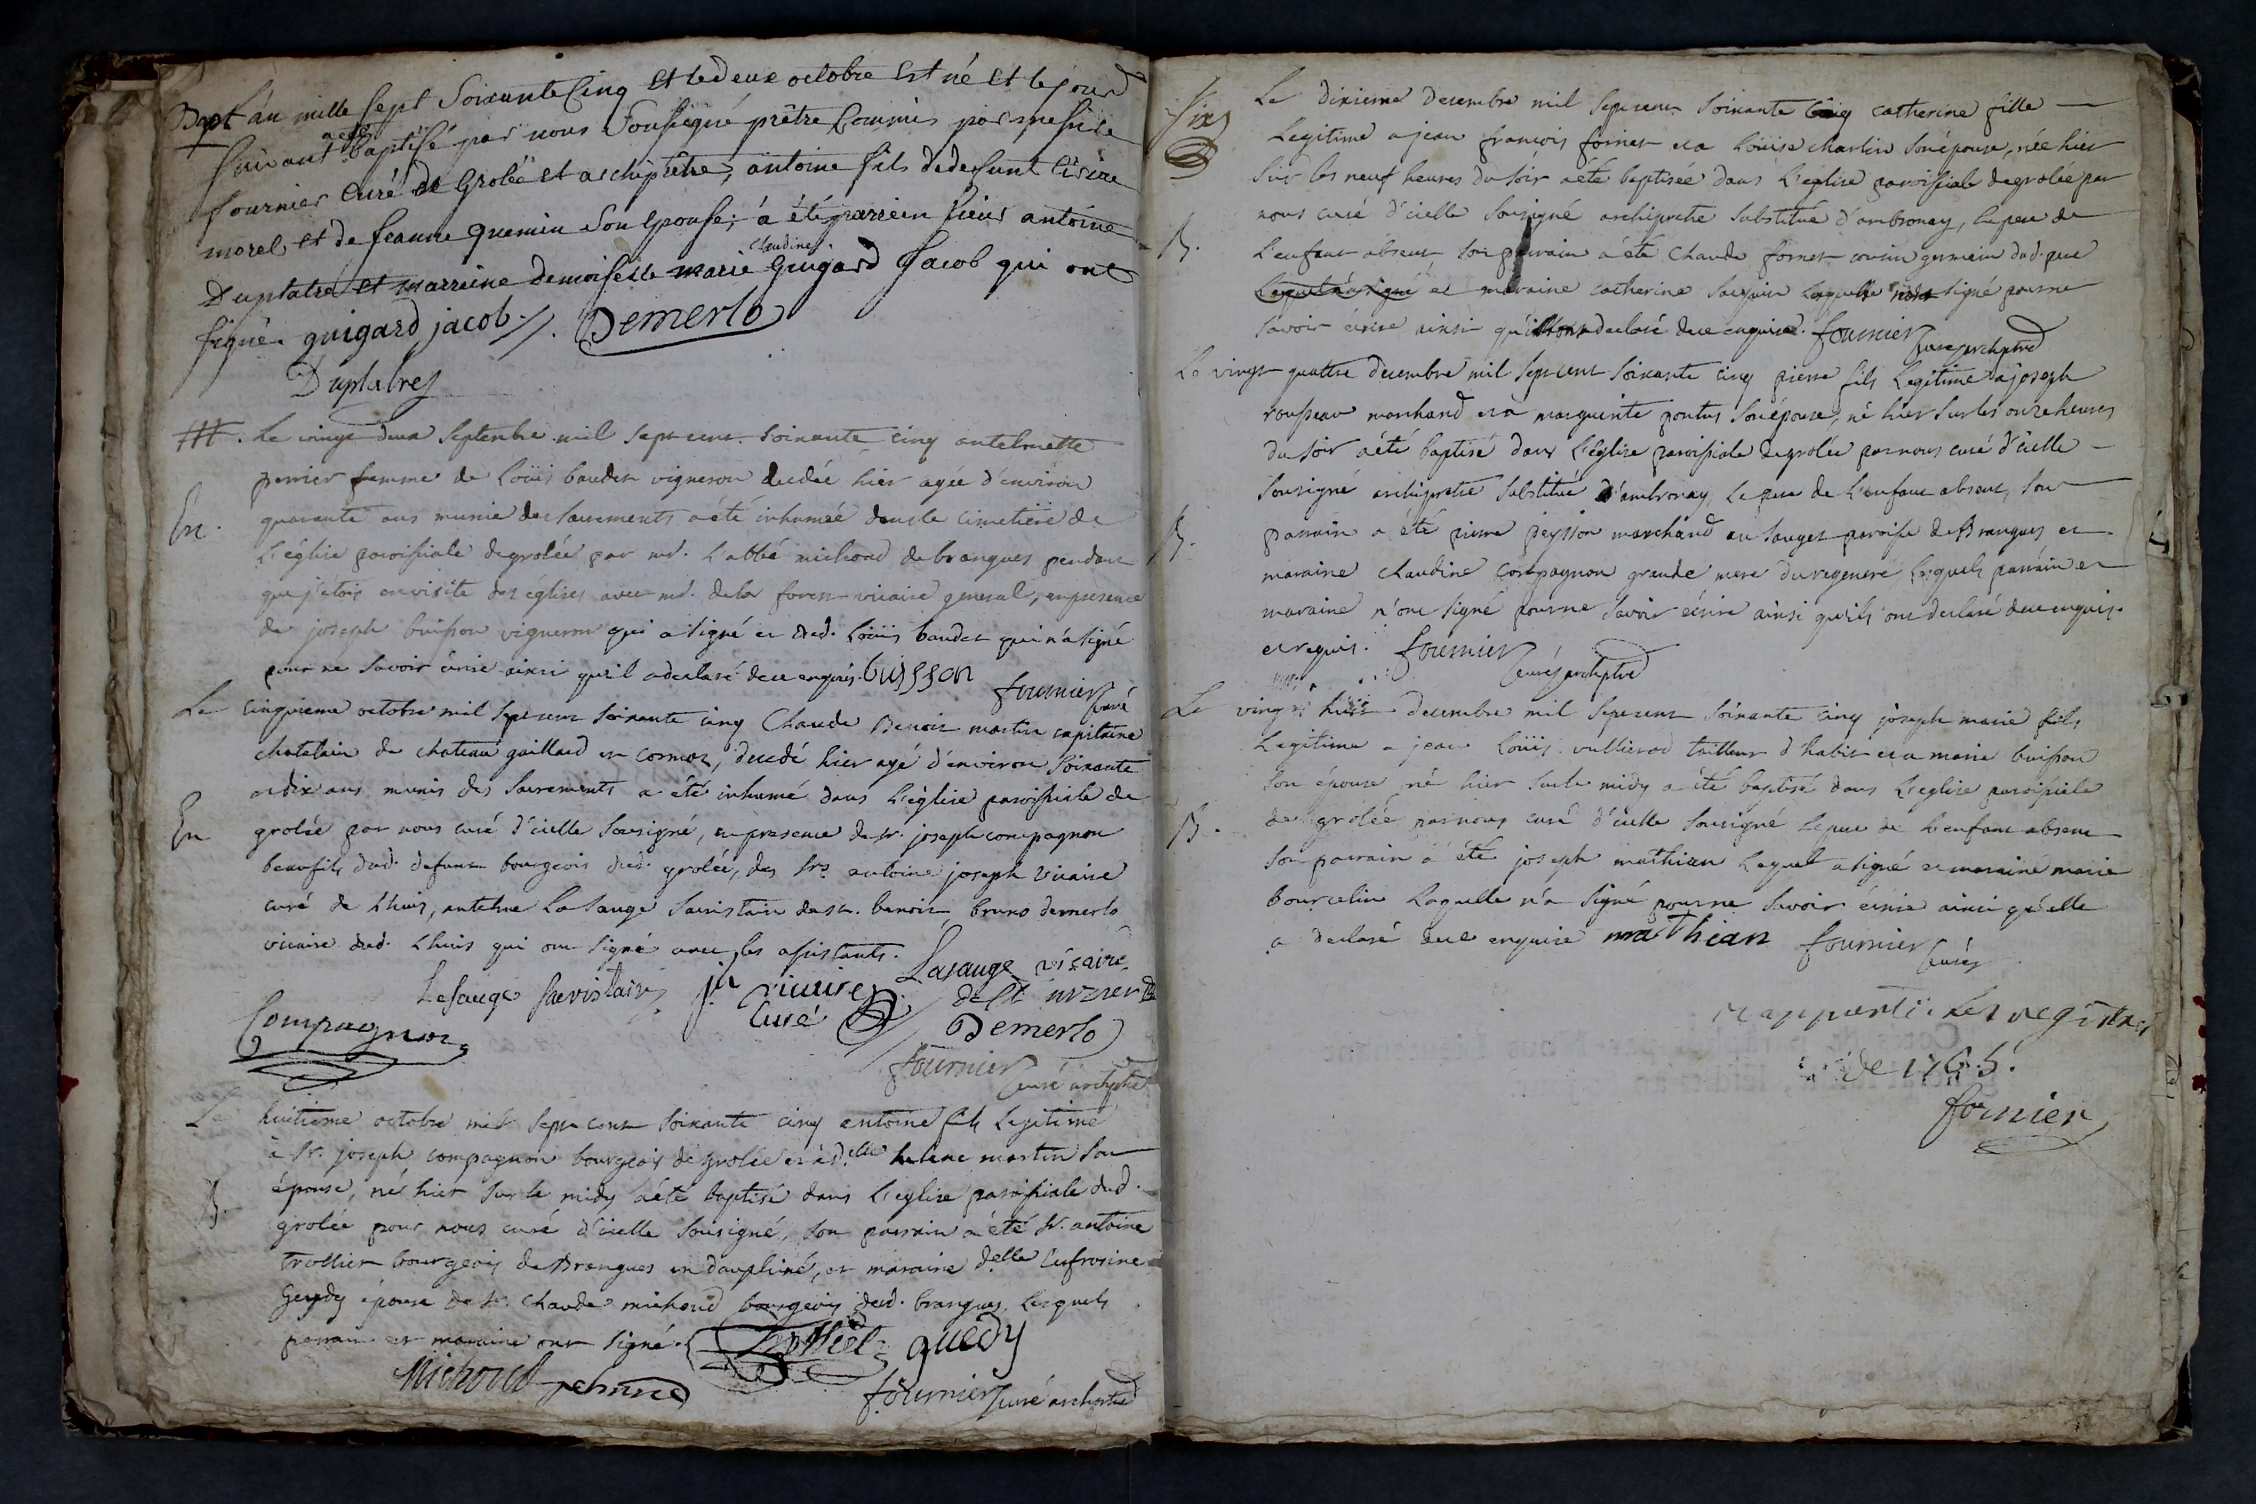 Bapt L'an mille sept soixante cinq et le deux octobre est né et le jour
suivant a été baptisé par nous soussigné prêtre commis par messire
fournier curé de Grolée et archiprêtre, antoine fils de defunt
morel et de jeanne quemin son epouse; a été parrein sieur antoine
Duplatre et marreine demoiselle marie claudine Guigard Jacob qui ont
signé. guigard jacob. Demerlo
Duplatre
Le vingt deux septembre mil sept cent soixante cinq antelmette
perrier femme de Loüis baudet vigneron decedée hier agée d'environ
En. quarante ans munie des sacrements a été inhumée dans le cimetiere de
L'église paroissiale de grolée par mr. l'abbé michoud de brangues pendant
que j'etois en visite des églises avec mr. de la forest vicaire general, en presence
de joseph buisson vigneron qui a signé et dud. Loüis baudet qui n'a signé
pour ne savoir écrire ainsi qu'il a declaré de ce enquis. buisson
fournier curé
Le cinquieme octobre mil sept cent soixante cinq Claude Benoit martin capitaine
chatelain de chateau gaillard et cormoz, decedé hier agé d'environ soixante
et dix ans munis des sacrements a été inhumé dans L'église paroissiale de
En grolée par nous curé d'icelle sousigné, en presence de sr. joseph compagnon
beaufils dud. defunt bourgeois dud. grolée, des srs. antoine joseph vicaire
curé de Lhuis, antelme La sauge sacristain de st. benoit bruno demerlo
vicaire dud. Lhuis qui ont signé avec les assistants.
Lasauge sacristain, vicaire curé Lasauge vicaire
de St
Compagnon Demerlo
fournier curé archiptre
Le huitieme octobre mil sept cent soixante cinq antoine fils Legitime
à sr. joseph compagnon bourgeois de grolée et à d.elle helene martin son
épouse, né hier sur le midy a été baptisé dans L'eglise paroissiale dud.
B. grolée par nous curé d'icelle sousigné, son parrain a été sr. antoine
trollier bourgeois de Brangues en dauphiné, et maraine d.elle Eufrosine
Geydy épouse de sr. Claude michoud bourgeois dud. brangues, lesquels
parrain et maraine ont signé. Trolliet guedy
Michoud
fournier curé archiptre
Six
Le dixieme decembre mil sept cent soixante cinq catherine fille
Legitime a jean françois fornet et a Loüise charlin son épouse, née hier
sur les neuf heures du soir a été baptisée dans L'eglise paroissiale de grolée par
nous curé d'icelle sousigné archiprete substitué d'ambronay, le pere de
B. L'enfant absent son parrain a été Claude fornet cousin germain dud. pere
lequel n'a signé et maraine catherine laquelle signé pour ne
savoir écrire ainsi qu'ils ont declaré de ce enquise. fournier
curé archiptre
Le vingt quattre decembre mil sept cent soixante cinq pierre fils Legitime a joseph
rousseau marchand et a marguerite pontus son épouse, né hier sur les onze heures
du soir a été baptisé dans L'église paroissiale de grolée par nous curé d'icelle
sousigné archiprete substitué d'ambronay, le pere de L'enfant absent, son
B. parrain a été pierre peysson marchand au sauget paroisse de Brangues et
maraine claudine compagnon grande mere du regeneré lesquels parrain et
maraine n'ont signé pour ne savoir écrire ainsi qu'ils ont declaré de ce enquis.
et requis. fournier
curé archiptre
Le vingt huit decembre mil sept cent soixante cinq joseph marie fils
Legitime a jean Loüis vullierod tailleur d'habit et a marie buisson
son épouse né hier sur le midy a été baptisé dans L'eglise paroissiale
B. de grolée par nous curé d'icelle sousigné le pere de L'enfant absent
son parrain a été joseph mathian lequel a signé et maraine marie
bourcelin laquelle n'a signé pour ne savoir écrire ainsi qu'elle
a declaré de ce enquise mathian fournier
curé
rapporté les registres
de 1765.
fornier